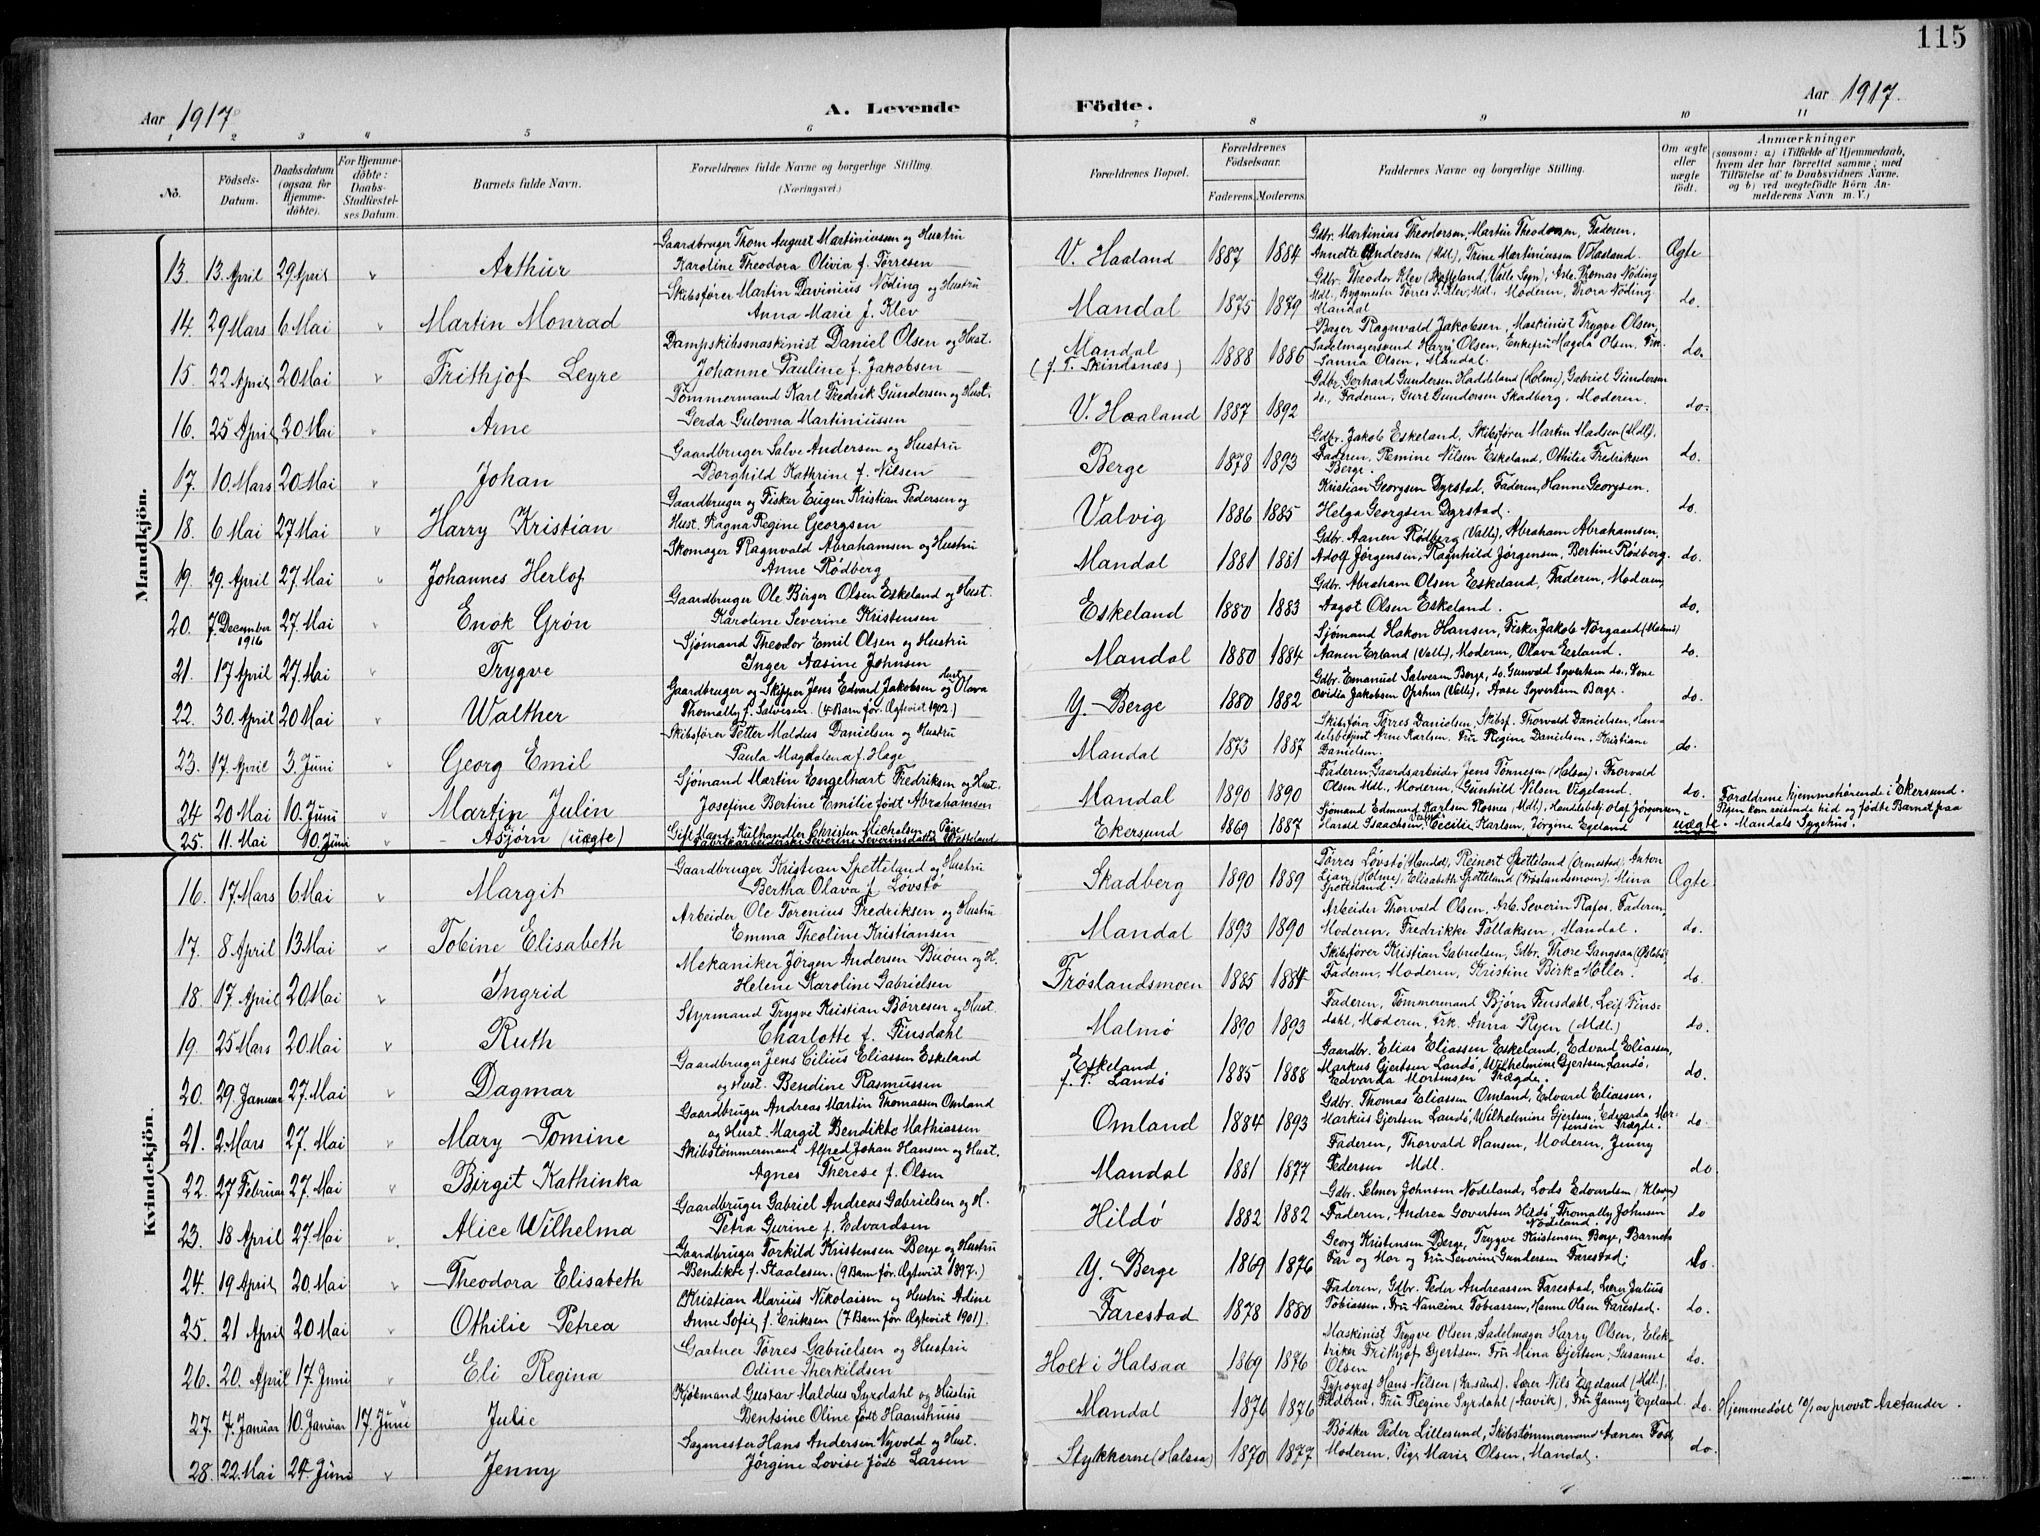 115
Aar 1917
A. Levende
Födte.
Aar 1917.
1 2 3 4 5 6 7 8 9 10 11
No.
Födsels-Datum.
Daabsdatum (ogsaa for Hjemmedöbte).
For Hjemmedöbte: Daabs-Stadfæstelses Datum.
Barnets fulde Navn.
Forældrenes fulde Navne og borgerlige Stilling. (Næringsvei.)
Forældrenes Bopæl.
Forældrenes Födselsaar.
Faderens. Moderens.
Faddernes Navne og borgerlige Stilling.
Om ægte eller uægte födt.
Anmærkninger
(saasom: a) i Tilfælde af Hjemmedaab, hvem der har forrettet samme, med Tilföielse af to Daabsvidners Navne, og b) ved uægtefödte Börn Anmelderens Navn m. V.)
Mandkjön.
13. 13. April 29 April Arthur Gaardbruger Thom August Martiniussen og Hustru Karoline Theodora Olivia f. Tørresen V. Haaland 1887 1884 Gdbr. Martinius Theodorsen, Martin Theodorsen, Faderen, Annette Andersen (Mdl), Trine Martiniussen V Haaland. Ægte
14. 29 Mars 6 Mai Martin Monrad Skibsfører Martin Davinius Nöding og Hustru Anna Marie f. Klev Mandal 1875 1879 Gdbr. Theodor Klev, Thomas Nöding Mdl., Bygmester Tørres T. Klev, Mdl., Moderen, Thora Nöding Mandal do.
15. 22 April 20 Mai Frithjof Leyre Dampskibsmaskinist Daniel Olsen og Hust. Johanne Pauline f. Jakobsen Mandal (f. T. Skindsnæs) 1888 1886 Bager Ragnvald Jakobsen, Maskinist Trygve Olsen, Sadelmagersvend Harry Olsen, Enkefru Magda Olsen, Susanna Olsen, Mandal. do.
16. 25 April 20 Mai Arne Tømmermand Karl Fredrik Gundersen og Hust. Gerda Gulovna Martiniussen V. Haaland 1887 1892 Gdbr. Gerhard Gundersen Haddeland (Holme), Gabriel Gundersen do., Faderen, Guri Gundersen Skadberg, Moderen. do.
17. 10. Mars 20 Mai Johan Gaardbruger Salve Andersen og Hustru Borghild Kathrine f. Nilsen Berge 1878 1893 Gdbr. Jakob Eskeland, Skibsfører Martin Madsen (Mdl), Faderen, Nilsen Eskeland, Othilie Fredriksen Berge. do.
18. 6 Mai 27 Mai Harry Kristian Gaardbruger og Fisker Eugen Kristian Pedersen og Hust. Ragna Regine Georgsen Valvig 1886 1885 Kristian Georgsen Dyrstad, Faderen, Hanne Georgsen. Helga Georgsen Dyrstad. do.
19. 29. April 27. Mai Johannes Herlof Skomager Ragnvald Abrahamsen og Hustru Anne Rødberg Mandal 1881 1881 Gdbr. Aanen Rødberg (Valle), Abraham Abrahamsen, Adolf Jørgensen, Ragnhild Jørgensen, Bertine Rødberg. do.
20. 7. December 1916 27. Mai Enok Grøn Gaardbruger Ole Birger Olsen Eskeland og Hust. Karoline Severine Kristensen Eskeland 1880 1883 Gdbr. Abraham Olsen Eskeland, Faderen, Moderen, Aagot Olsen Eskeland. do.
21. 17 April 27. Mai Trygve Sjömand Theodor Emil Olsen og Hustru Inger Aasine Johnsen Mandal 1880 1884 Sjömand Hakon Hansen, Fisker Jakob Nörgaard, Aanen Erland (Valle), Moderen, Olava Eerland. do.
22. 30. April 20 Mai Walther Gaardbruger og Skipper Jens Edvard Jakobsen og Hust. Olava Thomally f. Salvesen. (4 Barn før. Ægteviet 1902.) Y. Berge 1880 1882 Gdbr. Emanuel Salvesen Berge, do. Gunvald Syvertsen do., Ovidia Jakobsen Opshus (Valle), Aase Syvertsen Berge. do.
23. 17. April 3. Juni Georg Emil Skibsfører Petter Maldus Danielsen og Hustru Paula Magdalena f. Hage Mandal 1873 1887 Skibsfører Tørres Danielsen, Skibsf. Thorvald Danielsen, Handelsbetjent Arne Karlsen, Fru Regine Danielsen, Kristiane Danielsen. do.
24 20 Mai 10. Juni Martin Julin Sjömand Martin Engelhart Fredriksen og Hust. Josefine Bertine Emilie født Abrahamsen Mandal 1890 1890 Faderen, Gaardsarbeider Jens Tönnesen (Halsaa), Thorvald Olsen Mdl., Moderen, Gunhild Nilsen Vigeland. do.
25. 11. Mai 10. Juni Asjørn (uægte) Gift Mand, Kulhandler Christen Michalsen, Pige Fabrikarbeiderske Severine Severinsdatter Ekersund 1869 1887 Sjömand Edmund Karlsen Rosnes (Mdl), Handelsbetj. Olaf Jörgensen, Harald Isaachsen, Cecilie Karlsen, Jörgine Egeland uægte. Forældrene hjemmehörende i Ekersund. Pigen kom reisende hid og fødte Barnet paa Mandals Sygehus.
Kvindekjön.
16. 17. Mars 6 Mai Margit Gaardbruger Kristian Spetteland og Hustru Bertha Olava f. Lövstö Skadberg 1890 1889 Törres Lövstö, Mandal, Reinert Spetteland (Ormestad), Anton Lian (Holme), Elisabeth Spetteland (Frøslandsmoen), Mina Spetteland. Ægte
17. 8 April 13 Mai Tobine Elisabeth Arbeider Ole Torenius Fredriksen og Hustru Emma Theoline Kristiansen Mandal 1893 1890 Arbeider Thorvald Olsen, Arb. Severin Rafos, Faderen, Moderen, Fredrikke Follaksen, Mandal. do.
18 17 April 20 Mai Ingrid Mekaniker Jörgen Andersen Buöm og H. Helene Karoline Gabrielsen Frøslandsmoen 1885 1884 Skibsfører Kristian Gabrielsen, Gdbr. Thore Gangsaa, Faderen, Moderen, Kristine Birk Möller. do.
19. 25 Mars 20 Mai Ruth Styrmand Trygve Kristian Börresen og Hust. Charlotte f. Finsdahl Malmö 1890 1893 Faderen, Tømmermand Bjørn Finsdahl, Leif Finsdahl, Moderen, Frk. Anna Ryen (Mdl) do.
20. 29. Januar 27. Mai Dagmar Gaardbruger Jens Cilius Eliassen Eskeland og Hust. Bendine Rasmussen Eskeland f. T. Landö 1885 1888 Gaardbr. Elias Eliassen Eskeland, Edvard Eliassen, Markus Gjertsen Landö, Wilhelmine Gjertsen Landö, Edvarda Mortensen Trægde. do.
21. 2. Mars 27. Mai Mary Tomine Gaardbruger Andreas Martin Thomassen Omland og Hust. Margit Bendikte Mathiassen Omland 1884 1893 Gdbr. Thomas Eliassen Omland, Edvard Eliassen, Markus Gjertsen Landö, Wilhelmine Gjertsen, Edvarda Mortensen Trægde. do.
22. 27 Februar 27. Mai Birgit Kathinka Skibstømmermand Alfred Johan Hansen og Hust. Agnes Therese f. Olsen Mandal 1881 1877 Faderen, Thorvald Hansen, Moderen, Jenny Pedersen Mdl. do
23. 18 April 27. Mai Alice Wilhelma Gaardbruger Gabriel Andreas Gabrielsen og H. Petra Gurine f. Edvardsen Hildö 1882 1882 Gdbr. Selmer Johnsen Nodeland, Lods Edvardsen (Kleven), Faderen, Andrea Govertsen Hildö, Thomally Johnsen Nodeland. do
24. 19 April 20. Mai Theodora Elisabeth Gaardbruger Torkild Kristensen Berge og Hustru Bendikte f. Staalesen. (9 Barn før. Ægteviet 1897.) Y. Berge 1869 1876 Georg Kristensen Berge, Trygve Kristensen Berge, Barnets Far og Mor og Fru Severine Gundersen Farestad. do.
25. 21 April 20 Mai Othilie Petrea Kristian Marius Nikolaisen og Hustru Adine Anne Sofie f. Eriksen (7 Barn før. Ægteviet 1901). Farestad 1878 1880 Faderen, Gdbr. Peder Andreassen Farestad, Lærer Julius Tobiassen, Fru Nancine Tobiassen, Hanne Olsen Farestad. do.
26. 20. April 17. Juni Eli Regina Gartner Törres Gabrielsen og Hustru Odine Therkildsen Holt i Halsaa 1869 1876 Maskinist Trygve Olsen, Sadelmager Harry Olsen, Elektriker Frithjof Gjertsen, Fru Mina Gjertsen, Susanne Olsen do.
27. 7. Januar 10. Januar 17. Juni Julie Kjöbmand Gustav Maldus Syrdahl og Hustru Bentsine Oline født Haanshuus Mandal 1876 1876 Typograf Hans Nilsen (Kr.sund), Lærer Nils Egeland (Mdl), Faderen, Fru Regine Syrdahl (Aavik), Fru Janny Egeland. do. Hjemmedöbt 10/1 av provst Arctander.
28. 22. Mai 24. Juni Jenny Sagmester Hans Andersen Nyvold og Hust. Jörgine Lovise født Larsen Stykkerne (Halsaa) 1870 1877 Bödker Peder Lillesund, Skibstömmermand Aanen Foss, Moderen, Pige Marie Olsen, Mandal. do.